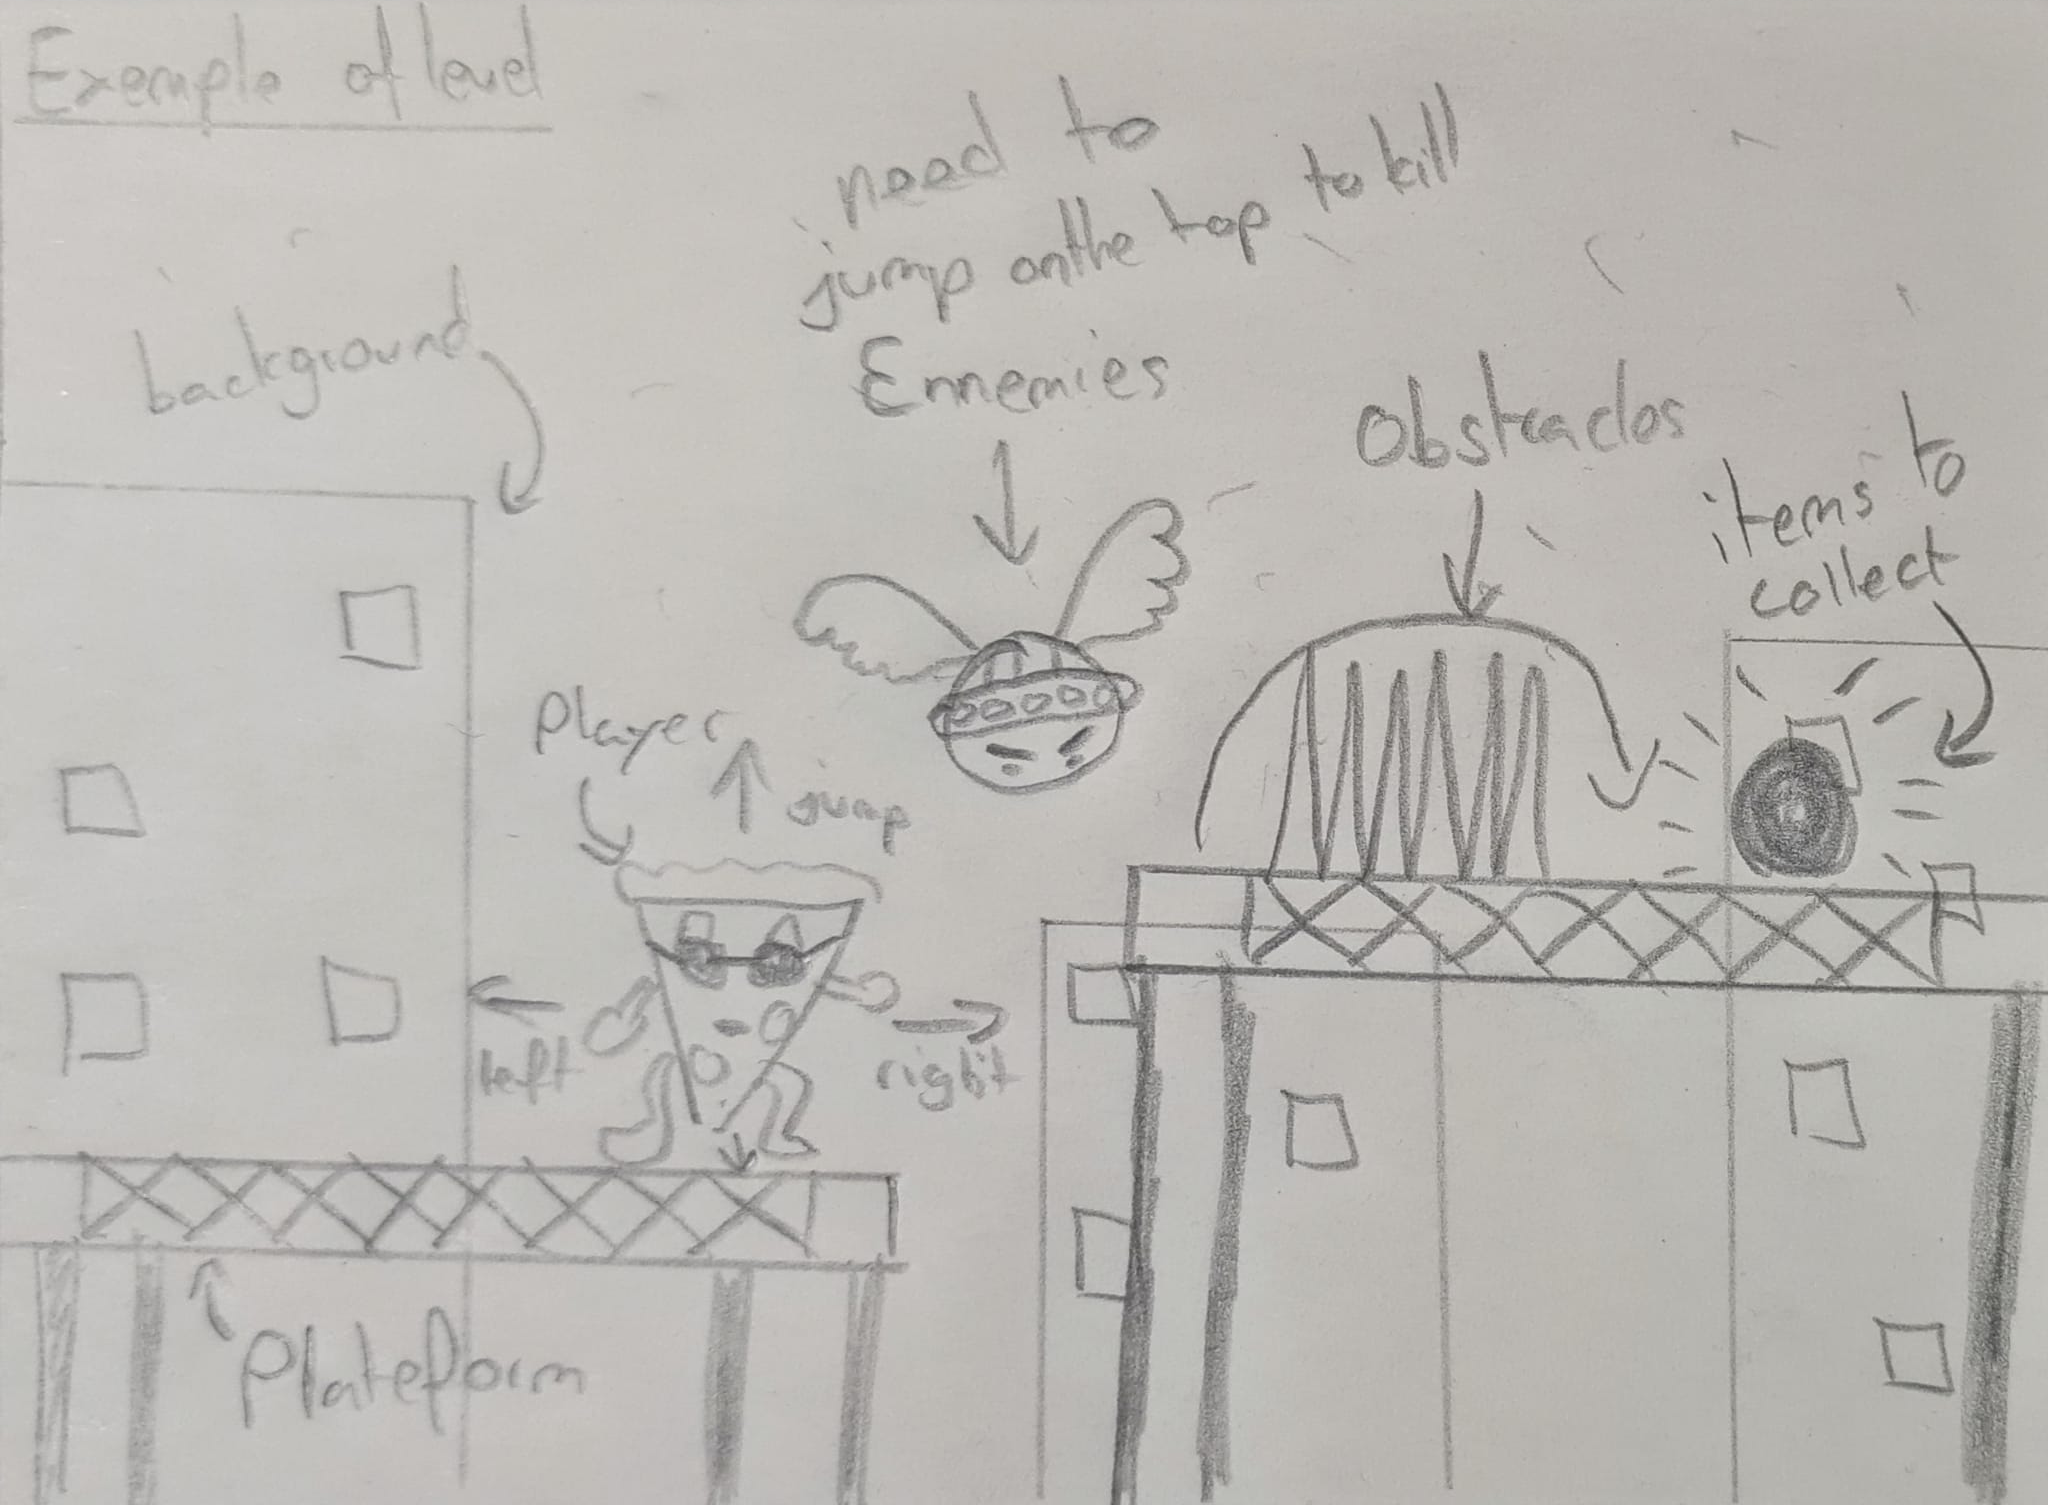 Exemple of level
need to
jump on the top to kill
Ennemies
background
Obstracles
items to
collect
Player
jump
left
right
Plateform